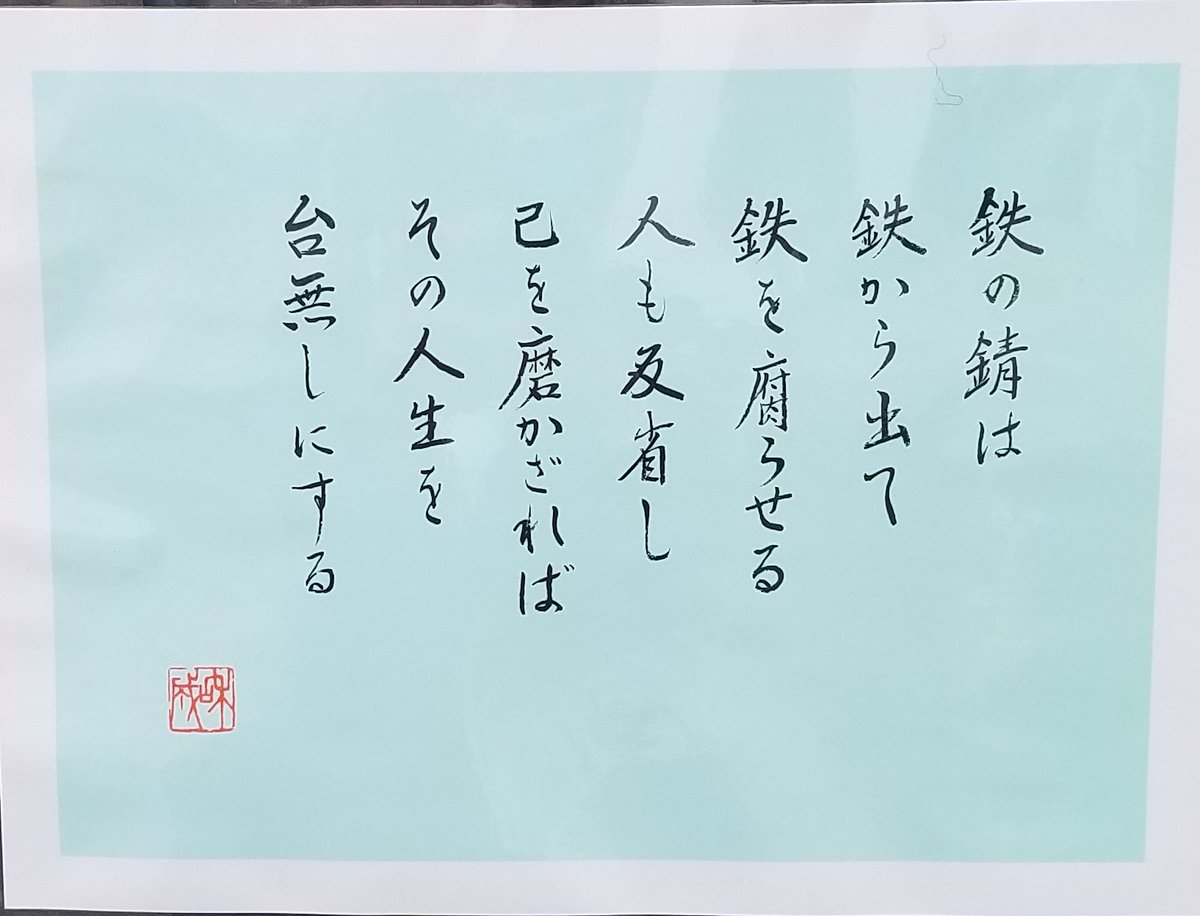 鉄の錆は
鉄から出て
鉄を腐らせる
人も反省し
己を磨かざれば
その人生を
台無しにする